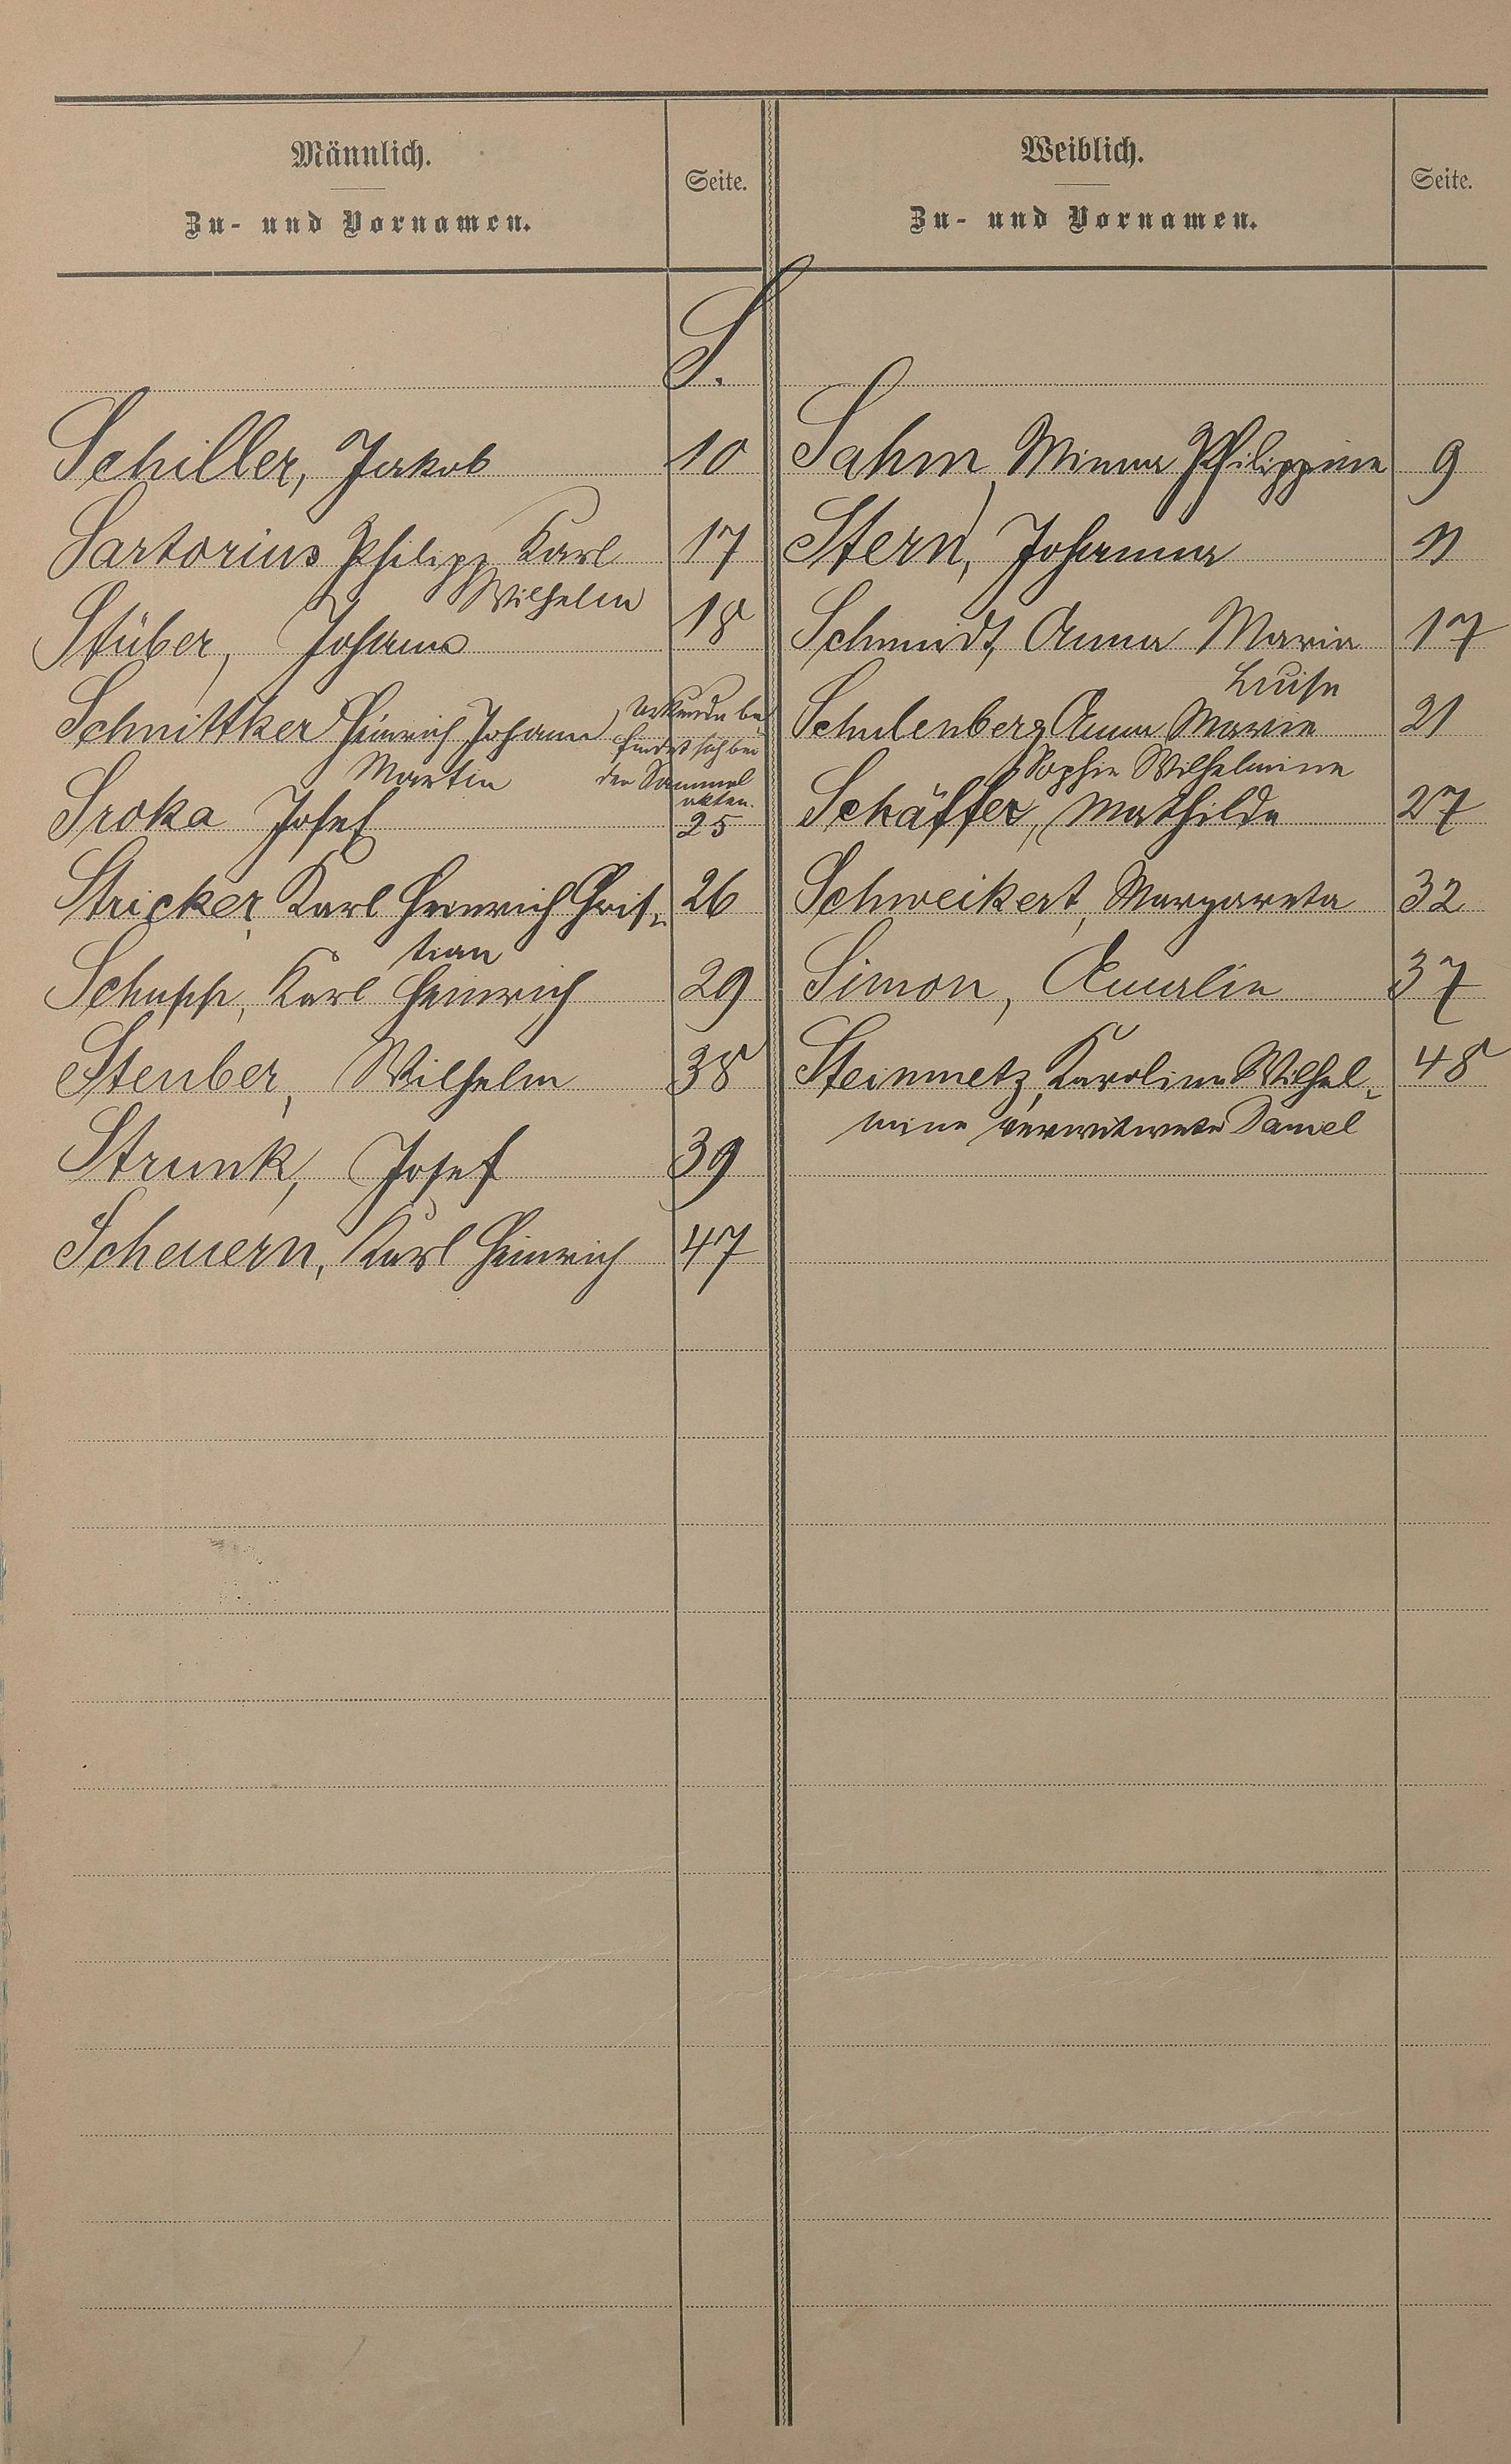 Männlich.
Zu- und Vornamen.
Seite.
Weiblich.
Zu- und Vornamen.
Seite.
S.
Schiller, Jakob 10
Sartorius Philipp Karl 17
Wilhelm
Stüber, Johann 18
Schnittker Heinrich Johann
Martin
, Urkunde be
findet sich bei
den Sammel
akten.
Sroka Josef 25
Stricker, Karl Heinrich Chris-
tian 26
Schupp, Karl Heinrich 29
Steuber, Wilhelm 38
Strunk, Josef 39
Scheuern, Karl Heinrich 47
Sahm, Minna Philippine 9
Stern, Johanna 11
Schmidt, Anna Maria 17
Luise
Schulenberg, Anna Marie 21
Sophie Wilhelmine
Schäffer, Mathilde 27
Schweikert, Margareta 32
Simon, Amalie 37
Steinmetz, Karoline Wilhel- 48
mine verwitwete Daniel